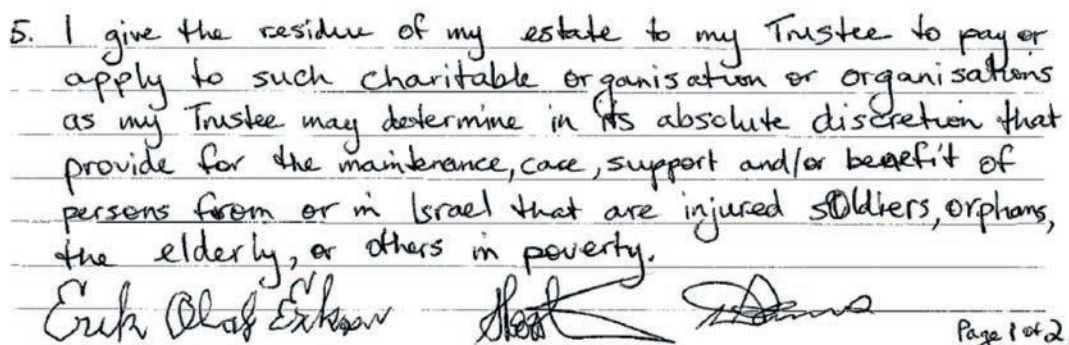 5. I give the residue of my estate to my Trustee to pay or
apply to such charitable organisation or organisations
as my Trustee may determine in its absolute discretion that
provide for the maintenance, care, support and/or benefit of
persons from or in Israel that are injured soldiers, orphans,
the elderly, or others in poverty.
Erik Olaf
Page 1 of 2